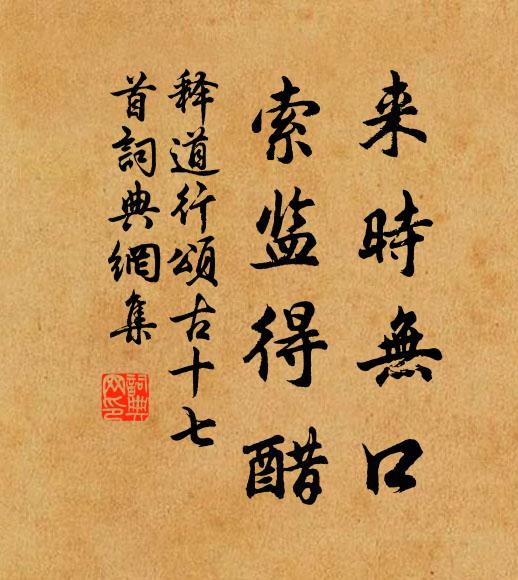 来時無口
索监得醋
释道行頌古十七
首詞典網集
詞典网印